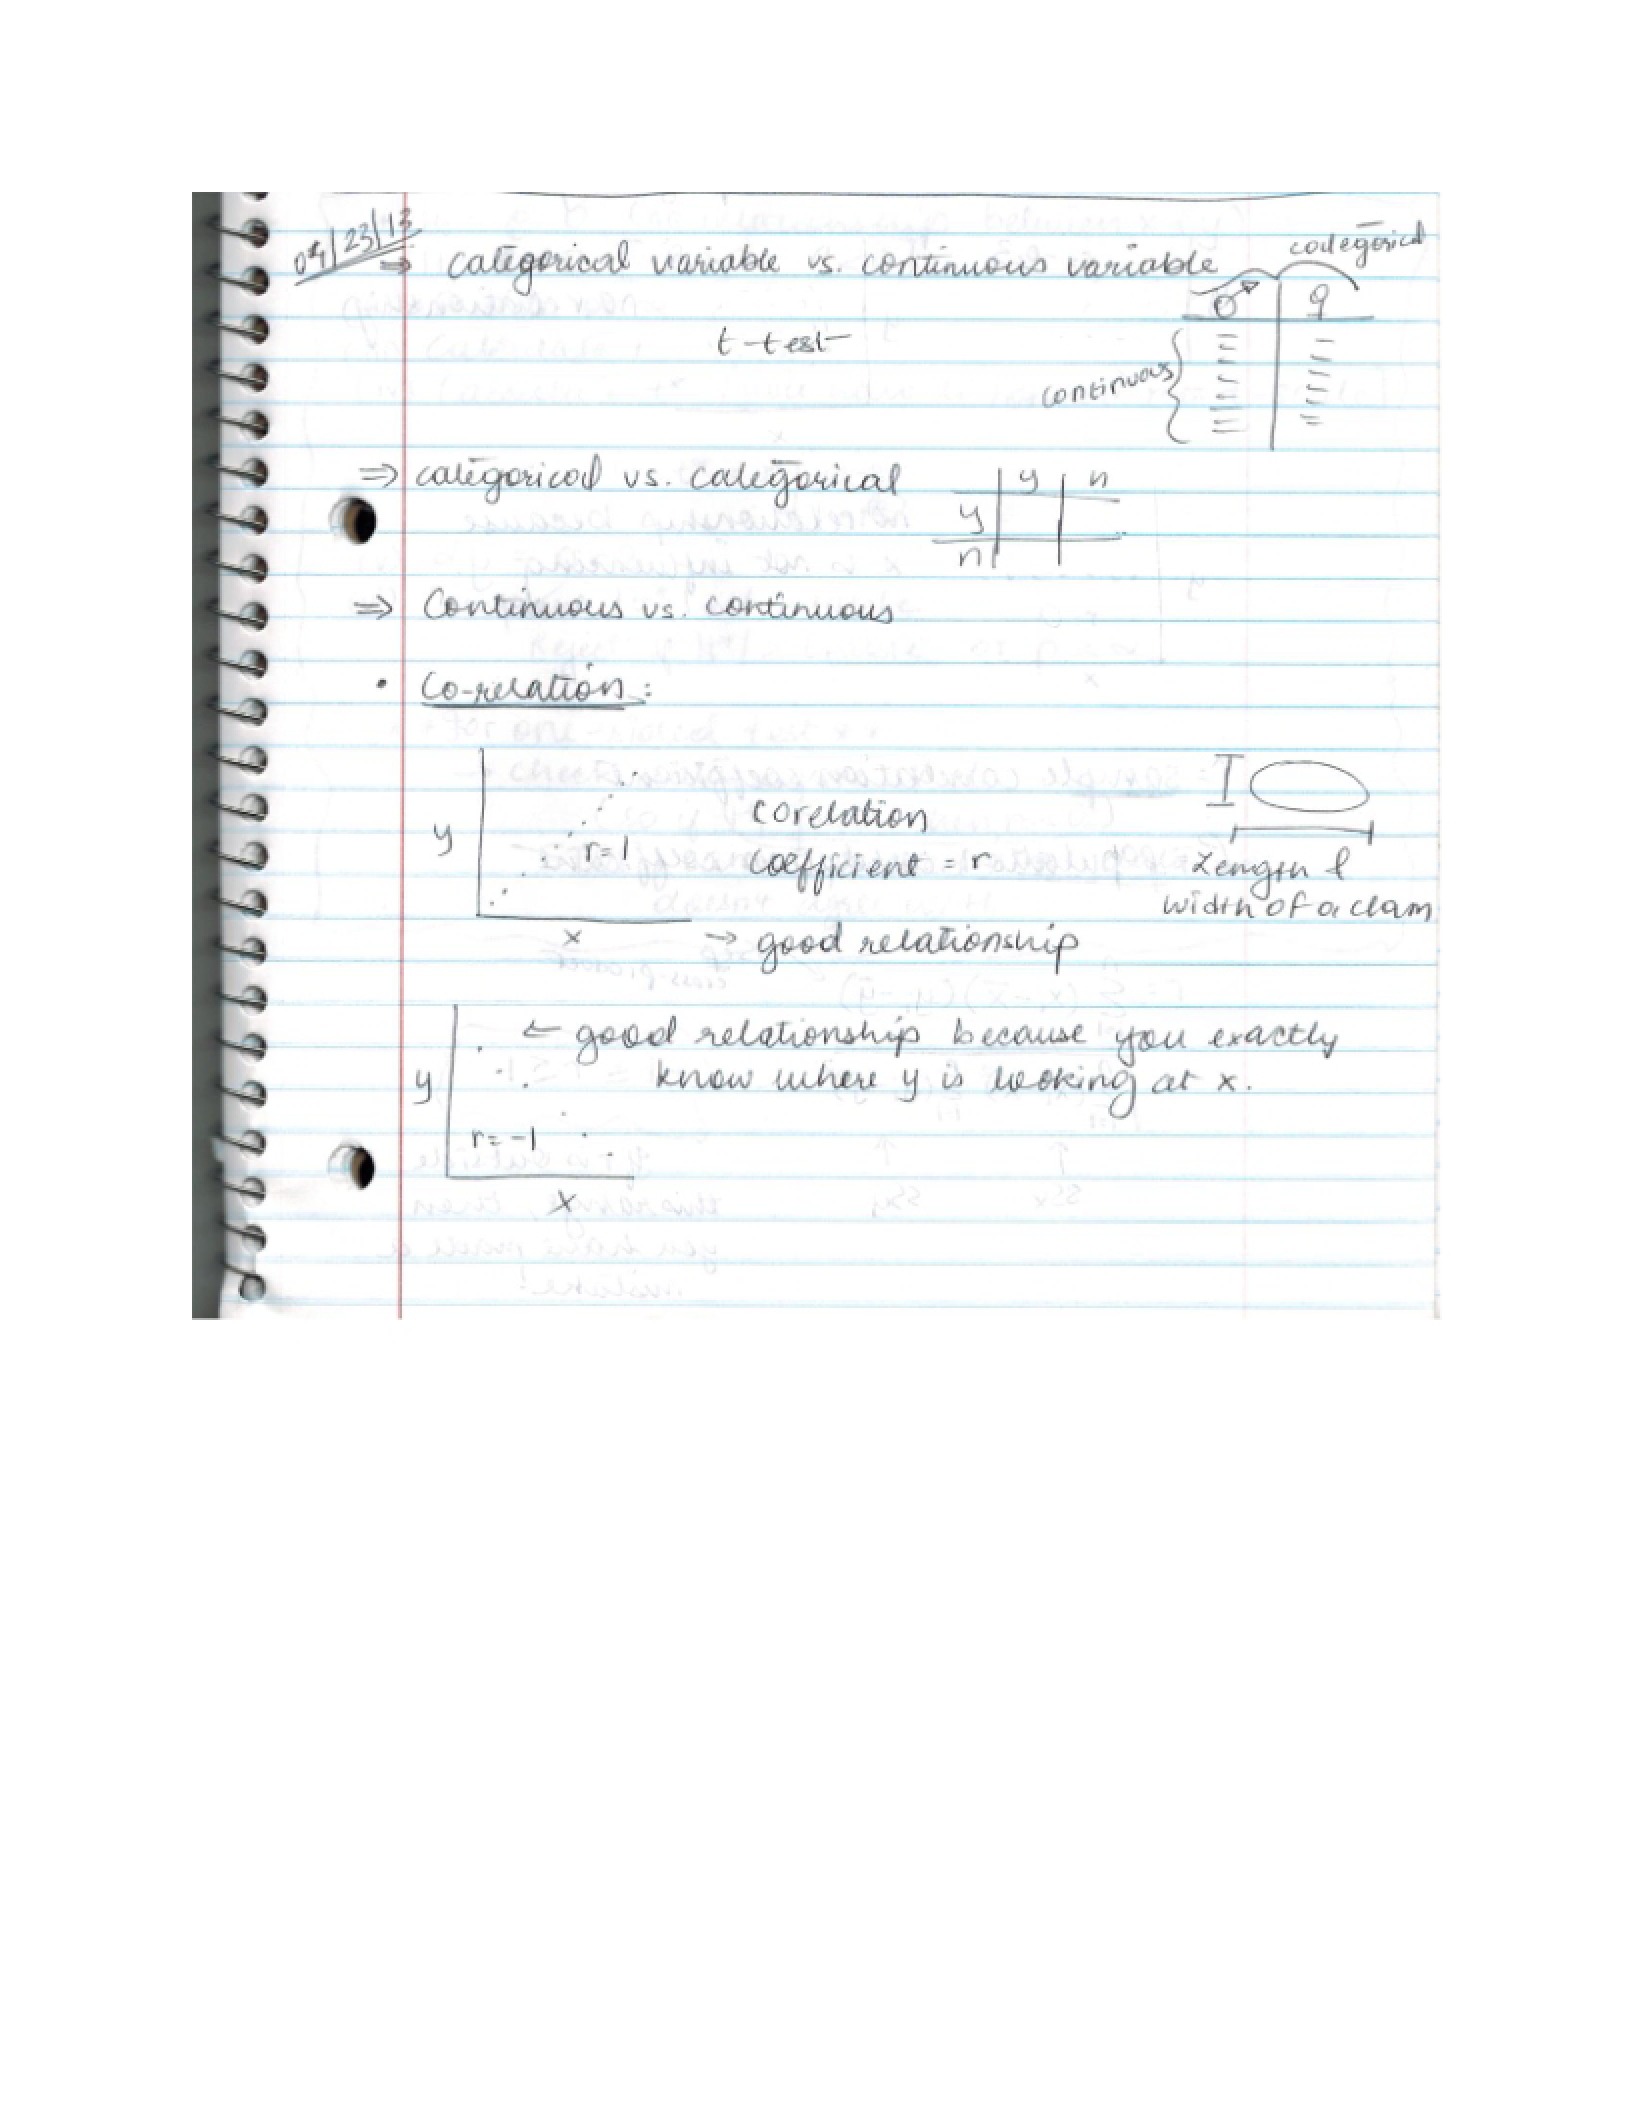 04/23/13
⇒ categorical variable vs. continuous variable
categorical
♂ ♀
t-test
continuous
⇒ categorical vs. categorical
y n
y
n
⇒ Continuous vs. continuous
• Co-relation:
y
r=1
x
corelation
coefficient = r
Length &
width of a clam
→ good relationship
← good relationship because you exactly
know where y is looking at x.
y
r= -1
x